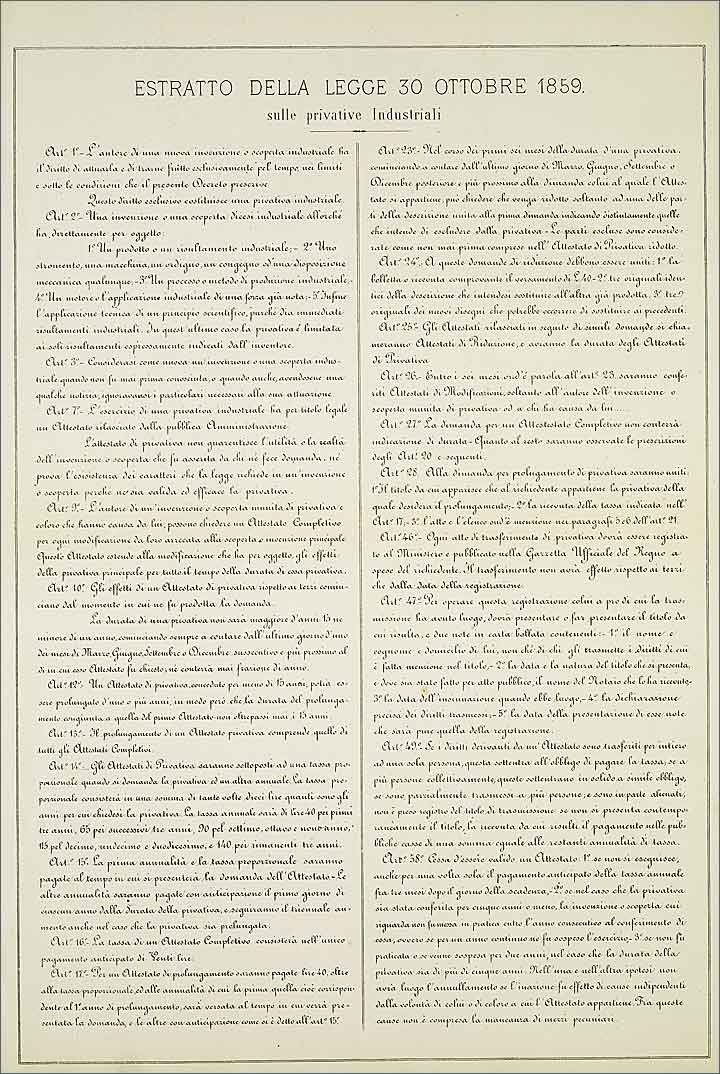 ESTRATTO DELLA LEGGE 30 OTTOBRE 1859.
sulle privative Industriali
Art.° 1°- L'autore di una nuova invenzione o scoperta industriale ha
il diritto di attuarla e di trarne frutto esclusivamente pel tempo, nei limiti
e sotto le condizioni che il presente Decreto prescrive
Questo diritto esclusivo costituisce una privativa industriale.
Art.° 2°- Una invenzione o una scoperta dicesi industriale allorchè
ha, direttamente per oggetto:
1° Un prodotto o un risultamento industriale;- 2° Uno
strumento, una macchina, un ordigno, un congegno od'una disposizione
meccanica qualunque;-3° Un processo o metodo di produzione industriale;-
4° Un motore o l'applicazione industriale di una forza già nota;-5° Infine
l'applicazione tecnica di un principio scientifico, purchè dia immediati
risultamenti industriali. In quest'ultimo caso la privativa è limitata
ai soli risultamenti espressamente indicati dall'inventore.
Art.° 3°- Considerasi come nuova un'invenzione o una scoperta indus-
triale quando non fu mai prima conosciuta, o quando anche, avendosene una
qualche notizia, ignoravansi i particolari necessari alla sua attuazione
Art.° 7°- L'esercizio di una privativa industriale ha per titolo legale
un Attestato rilasciato dalla pubblica Amministrazione
L'attestato di privativa non guarentisce l'utilità o la realtà
dell'invenzione o scoperta che fu asserita da chi nè fece domanda, nè
prova l'esistenza dei caratteri che la legge richiede in un'invenzione
o scoperta perchè ne sia valida ed efficace la privativa.
Art.° 9°- L'autore di un'invenzione o scoperta munita di privativa e
coloro che hanno causa da lui, possono chiedere un Attestato Completivo
per ogni modificazione da loro arrecata alla scoperta o invenzione principale
Questo Attestato estende alla modificazione che ha per oggetto, gli effetti
della privativa principale per tutto il tempo della durata di essa privativa.
Art.° 10° Gli effetti di un Attestato di privativa rispetto ai terzi comin-
ciano dal momento in cui ne fu prodotta la domanda.
La durata di una privativa non sarà maggiore d'anni 15 ne
minore di un anno, cominciando sempre a contare dall'ultimo giorno d'uno
dei mesi di Marzo, Giugno, Settembre o Dicembre successivo e più prossimo al
di in cui esso Attestato fu chiesto; nè conterrà mai frazione di anno.
Art.° 12°- Un Attestato di privativa, conceduto per meno di 15 anni, potrà es-
sere prolungato d'uno o più anni, in modo però che la durata del prolunga-
mento congiunta a quella del primo Attestato non oltrepassi mai i 15 anni.
Art.° 13°- Il prolungamento di un Attestato privativa comprende quello di
tutti gli Attestati Completivi.
Art.° 14°- Gli Attestati di Privativa saranno sottoposti ad una tassa pro-
porzionale quando si domanda la privativa ed un'altra annuale. La tassa pro-
porzionale consisterà in una somma di tante volte dieci lire quanti sono gli
anni per cui chiedesi la privativa. La tassa annuale sarà di lire 40 per primi
tre anni, 65 per successivi tre anni, 90 pel settimo, ottavo e nono anno,
115 pel decimo, undecimo e duodecimo, e 140 per rimanenti tre anni.
Art.° 15°. La prima annualità e la tassa proporzionale saranno
pagate al tempo in cui si presenterà la domanda dell'Attestato-Le
altre annualità saranno pagate con anticipazione il primo giorno di
ciascun anno dalla durata della privativa, e seguiranno il triennale au-
mento anche nel caso che la privativa sia prolungata.
Art.° 16°- La tassa di un Attestato Completivo consisterà nell'unico
pagamento anticipato di Venti lire.
Art.° 17°- Per un Attestato di prolungamento saranno pagate lire 40, oltre
alla tassa proporzionale, ed alle annualità di cui la prima quella cioè corrispon-
dente al 1° anno di prolungamento, sarà versata al tempo in cui verrà pre-
sentata la domanda, e le altre con anticipazione come si è detto all'art.° 15°.
Art.° 23°- Nel corso dei primi sei mesi della durata d'una privativa,
cominciando a contare dall'ultimo giorno di Marzo, Giugno, Settembre o
Dicembre posteriore e più prossimo alla dimanda colui al quale l'Attes-
tato si appartiene, può chiedere che venga ridotto soltanto ad una delle par-
ti della descrizione unita alla prima dimanda indicando distintamente quelle
che intende di escludere dalla privativa-Le parti escluse sono conside-
rate come non mai prima comprese nell'Attestato di Privativa ridotto.
Art.° 24°.- A queste domande di riduzione debbono essere uniti: 1° la
bolletta o ricevuta comprovante il versamento di L.40-2° tre originali iden-
tici della descrizione che intendesi sostituire all'altra già prodotta. 3° tre
originali dei nuovi disegni che potrebbe occorrere di sostituire ai precedenti.
Art.° 25°- Gli Attestati rilasciati in seguito di simili domande si chia-
meranno Attestati di Riduzione, e avranno la durata degli Attestati
di Privativa
Art.° 26.- Entro i sei mesi ond'è parola all'art.° 23. saranno confe-
riti Attestati di Modificazioni, soltanto all'autore dell'invenzione o
scoperta munita di privativa od a chi ha causa da lui.....
Art.° 27° La domanda per un Attestato Completivo non conterrà
indicazione di durata-Quanto al resto saranno osservate le prescrizioni
degli Art.° 20 e seguenti.
Art.° 28. Alla dimanda per prolungamento di privativa saranno uniti:
1° Il titolo da cui apparisce che al richiedente appartiene la privativa della
quale desidera il prolungamento;- 2° la ricevuta della tassa indicata nell'
Art.° 17;- 3° l'atto e l'elenco ond'è menzione nei paragrafi 5 e 6 dell'art.° 21.
Art.° 46°- Ogni atto di trasferimento di privativa dovrà essere registra-
to al Ministero e pubblicato nella Gazzetta Ufficiale del Regno a
spese del richiedente. Il trasferimento non avrà effetto rispetto ai terzi
che dalla data della registrazione.
Art.° 47° Per operare questa registrazione colui a prò di cui la tras-
missione ha avuto luogo, dovrà presentare o far presentare il titolo da
cui risulta, e due note in carta bollata contenenti:- 1° il nome e
cognome e domicilio di lui, non che di chi gli trasmette i diritti di cui
è fatta menzione nel titolo,- 2° la data e la natura del titolo che si presenta,
e dove sia stato fatto per atto pubblico, il nome del Notaio che lo ha ricevuto;-
3° la data dell'insinuazione quando ebbe luogo,- 4° la dichiarazione
precisa dei diritti trasmessi;- 5° la data della presentazione di esse note
che sarà pure quella della registrazione.
Art.° 49.° Se i diritti derivanti da un'Attestato sono trasferiti per intiero
ad una sola persona, questa sottentra all'obbligo di pagare la tassa, se a
più persone collettivamente, queste sottentrano in solido a simile obbligo,
se sono parzialmente trasmessi a più persone, e sono in parte alienati,
non è preso registro del titolo di trasmissione se non si presenta contempo-
raneamente il titolo, la ricevuta da cui risulti il pagamento nelle pub-
bliche casse di una somma eguale alle restanti annualità di tassa.
Art.° 58° Cessa d'essere valido un Attestato: 1° se non si eseguisce,
anche per una volta sola il pagamento anticipato della tassa annuale
fra tre mesi dopo il giorno della scadenza,-2° se nel caso che la privativa
sia stata conferita per cinque anni o meno, la invenzione o scoperta cui
riguarda non fu messa in pratica entro l'anno consecutivo al conferimento di
essa, ovvero se per un anno continuo ne fu sospeso l'esercizio-3° se non fu
praticata o se venne sospesa per due anni, nel caso che la durata della
privativa sia di più di cinque anni. Nell'una e nell'altra ipotesi non
avrà luogo l'annullamento se l'inazione fu effetto di cause independenti
dalla volontà di colui o di coloro a cui l'Attestato appartiene. Fra queste
cause non è compresa la mancanza di mezzi pecuniari.